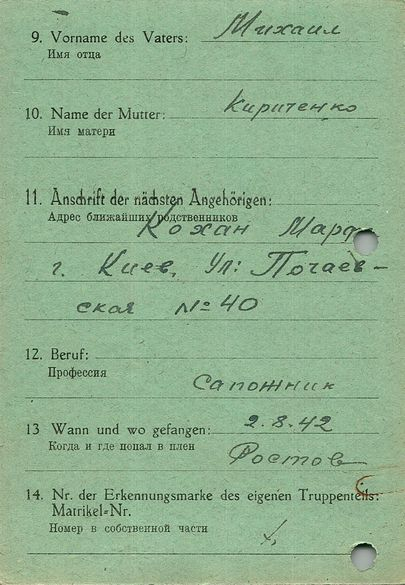 9. Vorname des Vaters: Михаил
Имя отца
10. Name der Mutter: Кириченко
Имя матери
11. Anschrift der nächsten Angehörigen:
Адрес ближайших родственников
Кохан
г. Киев, Ул: Почаев-
ская № 40
12. Beruf:
Профессия
Сапожник
13 Wann und wo gefangen: 2.8.42
Когда и где попал в плен
Ростов
14. Nr. der Erkennungsmarke des eigenen Truppenteils:
Matrikel=Nr.
Номер в собственной части